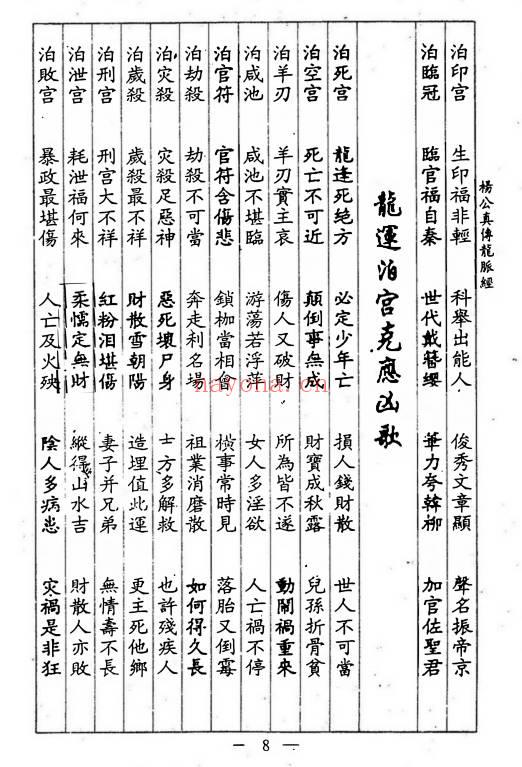 楊公真傳龍脈經
泊印宮 生印福非輕 科舉出能人 俊秀文章顯 聲名振帝京
泊臨冠 臨官福自秦 世代戴簪纓 筆力夸韓柳 加官佐聖君
龍運泊宮克應凶歌
泊死宮 龍逢死絕方 必定少年亡 損人錢財散 世人不可當
泊空宮 死亡不可近 顛倒事無成 財寶成秋露 兒孫折骨貧
泊羊刃 羊刃實主哀 傷人又破財 所為皆不遂 動鬧禍重來
泊咸池 咸池不堪臨 游蕩若浮萍 女人多淫欲 人亡禍不停
泊官符 官符含傷悲 鎖枷當相會 橫事常時見 落胎又倒霉
泊劫殺 劫殺不可當 奔走利名場 祖業消磨散 如何得久長
泊灾殺 灾殺足惡神 惡死壞尸身 士方多解救 也許殘疾人
泊歲殺 歲殺最不祥 財散雪朝陽 造埋值此運 更主死他鄉
泊刑宮 刑宮大不祥 紅粉泪堪傷 妻子并兄弟 無情壽不長
泊泄宮 耗泄福何來 柔懦定無財 縱得山水吉 財散人亦敗
泊敗宮 暴政最堪傷 人亡及火殃 陰人多病患 灾禍是非狂
nayona.cn
— 8 —